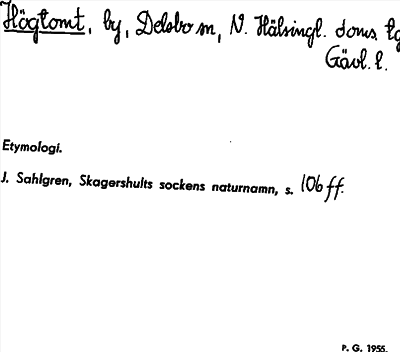 Högtomt, by, Delsbo sn, N. Hälsingl. doms. tg
Gävl. l.
Etymologi.
J. Sahlgren, Skagershults sockens naturnamn, s. 106 ff.
P. G. 1955.